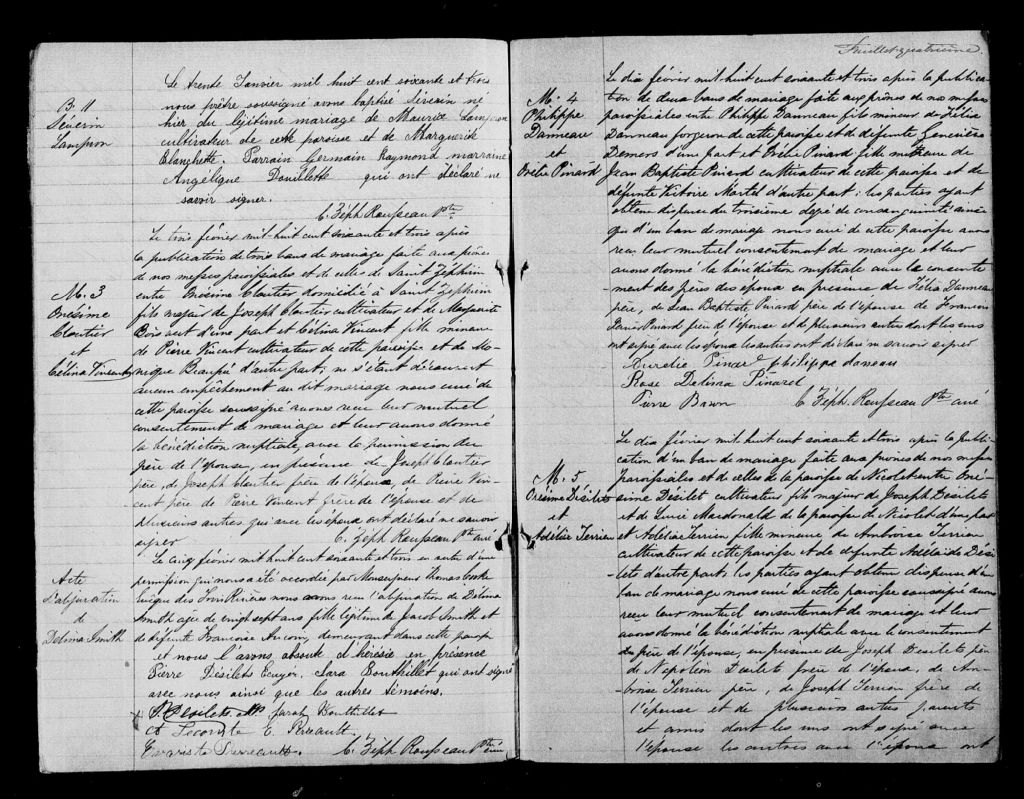 B 11
Séverin
Lampron
Le trente Janvier mil huit cent soixante et trois
nous prêtre soussigné avons baptisé Séverin né
hier du légitime mariage de Maurice Lampron
cultivateur de cette paroisse et de Marguerite
Blanchette. Parrain Germain Raymond marraine
Angélique Douillette qui ont déclaré ne
savoir signer.
C. Zéph Rousseau Ptre
M. 3
Onésime
Cloutier
et
Célina Vincent
Le trois février mil-huit cent soixante et trois après
la publication de trois bans de mariage faite aux prônes
de nos messes paroissiales et de celles de Saint Zéphirin
entre Onésime Cloutier domicilié à Saint Zéphirin
fils majeur de Joseph Cloutier cultivateur et de Marguerite
Boisvert d'une part et Célina Vincent fille mineure
de Pierre Vincent cultivateur de cette paroisse et de Mo-
nique Beaupré d'autre part; ne s'étant découvert
aucun empêchement au dit mariage nous curé de
cette paroisse soussigné avons reçu leur mutuel
consentement de mariage et leur avons donné
la bénédiction nuptiale avec la permission du
père de l'épouse, en présence de Joseph Cloutier
père, de Joseph Cloutier frère de l'époux, de Pierre Vin-
cent père de Pierre Vincent frère de l'épouse et de
plusieurs autres qui avec les époux ont déclaré ne savoir
signer C. Zéph Rousseau Ptre curé
Acte
d'abjuration
de
Delima Smith
Le cinq février mil huit cent soixante et trois en vertu d'une
permission qui nous a été accordée par Monseigneur Thomas Cooke
Evêque des Trois Rivières nous avons reçu l'abjuration de Delima
Smith agée de vingt sept ans fille légitime de Jacob Smith et
de défunte Françoise demeurant dans cette paroisse
et nous l'avons absoute d'hérésie en présence
Pierre Désilets Ecuyer, Sara Bouthillet qui ont signé
avec nous ainsi que les autres témoins.
Sarah Bouthillet
Lecomte E. Perreault
Evariste Perreault C. Zéph Rousseau Ptre curé
Feuillet quatrième.
M. 4
Philippe
Danneau
et
Orélie Pinard
Le dix février mil-huit cent soixante et trois après la publica-
tion de deux bans de mariage faite aux prônes de nos messes
paroissiales entre Philippe Danneau fils mineur de Félix
Danneau forgeron de cette paroisse et de défunte Geneviève
Demers d'une part et Orélie Pinard fille mineure de
Jean Baptiste Pinard cultivateur de cette paroisse et de
défunte Victoire Martel d'autre part; les parties ayant
obtenu dispense du troisième degré de consanguinité ainsi
que d'un ban de mariage nous curé de cette paroisse avons
reçu leur mutuel consentement de mariage et leur
avons donné la bénédiction nuptiale avec la consente
-ment des pères des époux en présence de Félix Danneau
père, de Jean Baptiste Pinard père de l'épouse de François
Pinard frère de l'épouse et de plusieurs autres dont les uns
ont signé avec les époux les autres ont déclaré ne savoir signer
Aurelie Pinard philippe daneau
Rose Delima Pinard
Pierre C. Zéph. Rousseau Ptre curé
M. 5
Onésime Désilets
et
Adélaïe Terrien
Le dix février mil huit cent soixante et trois après la publi-
cation d'un ban de mariage faite aux prônes de nos messes
paroissiales et de celles de la paroisse de Nicolet entre Oné-
sime Désilet cultivateur fils majeur de Joseph Désilets
et de Lucie Macdonald de la paroisse de Nicolet d'une part
et Adélaïe Terrien fille mineure de Ambroise Terrien
cultivateur de cette paroisse et de défunte Adélaïde Dési
-lets d'autre part; les parties ayant obtenu dispense d'un
ban de mariage nous curé de cette paroisse soussigné avons
reçu leur mutuel consentement de mariage et leur
avons donné la bénédiction nuptiale avec le consentement
du père de l'épouse, en présence de Joseph Désilets père
de Napoléon Désilets frère de l'époux, de Am-
broise Terrien père, de Joseph Terrien frère de
l'épouse et de plusieurs autres parents
et amis dont les uns ont signé avec
l'épouse les autres avec l'époux ont